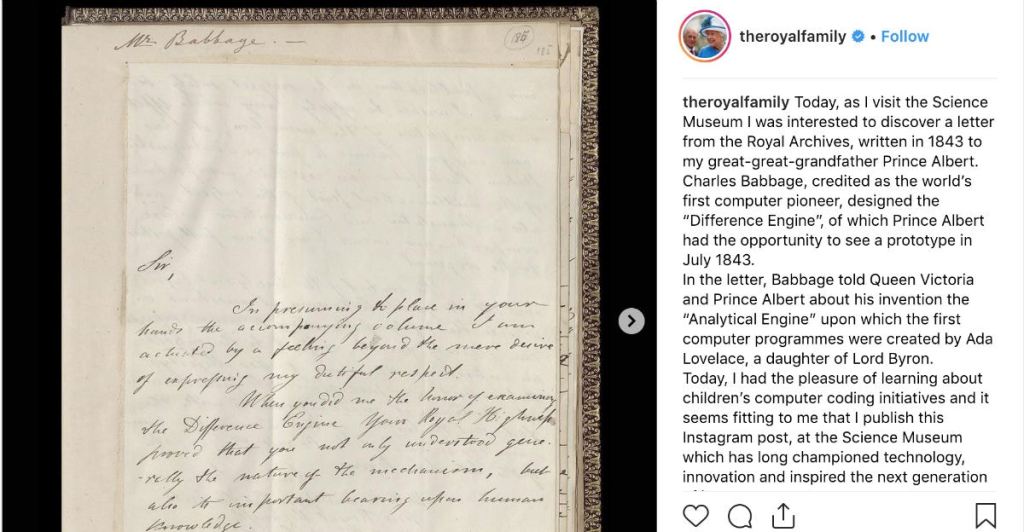 Mr. Babbage. —
186
185
Sir,
In presuming to place in your
hands the accompanying volume I am
actuated by a feeling beyond the mere desire
of expressing my dutiful respect.
When you did me the honor of examining
the Difference Engine Your Royal Highness
proved that you not only understood gene-
-rally the nature of the mechanism, but
also its important bearing upon human
Knowledge.
theroyalfamily • Follow
theroyalfamily Today, as I visit the Science
Museum I was interested to discover a letter
from the Royal Archives, written in 1843 to
my great-great-grandfather Prince Albert.
Charles Babbage, credited as the world’s
first computer pioneer, designed the
“Difference Engine”, of which Prince Albert
had the opportunity to see a prototype in
July 1843.
In the letter, Babbage told Queen Victoria
and Prince Albert about his invention the
“Analytical Engine” upon which the first
computer programmes were created by Ada
Lovelace, a daughter of Lord Byron.
Today, I had the pleasure of learning about
children’s computer coding initiatives and it
seems fitting to me that I publish this
Instagram post, at the Science Museum
which has long championed technology,
innovation and inspired the next generation